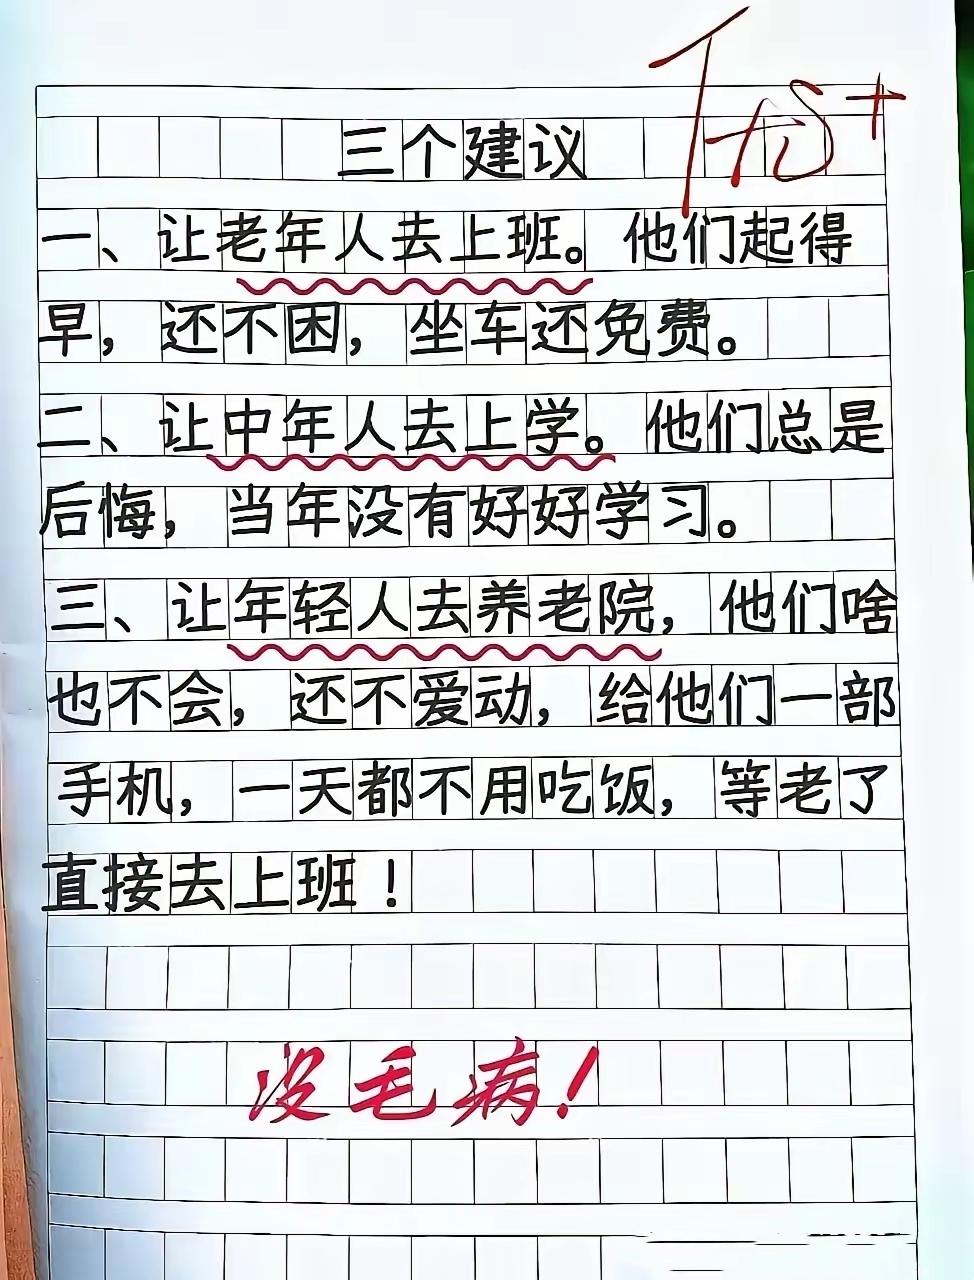 三个建议
一、让老年人去上班。他们起得
早，还不困，坐车还免费。
二、让中年人去上学。他们总是
后悔，当年没有好好学习。
三、让年轻人去养老院，他们啥
也不会，还不爱动，给他们一部
手机，一天都不用吃饭，等老了
直接去上班！
没毛病！